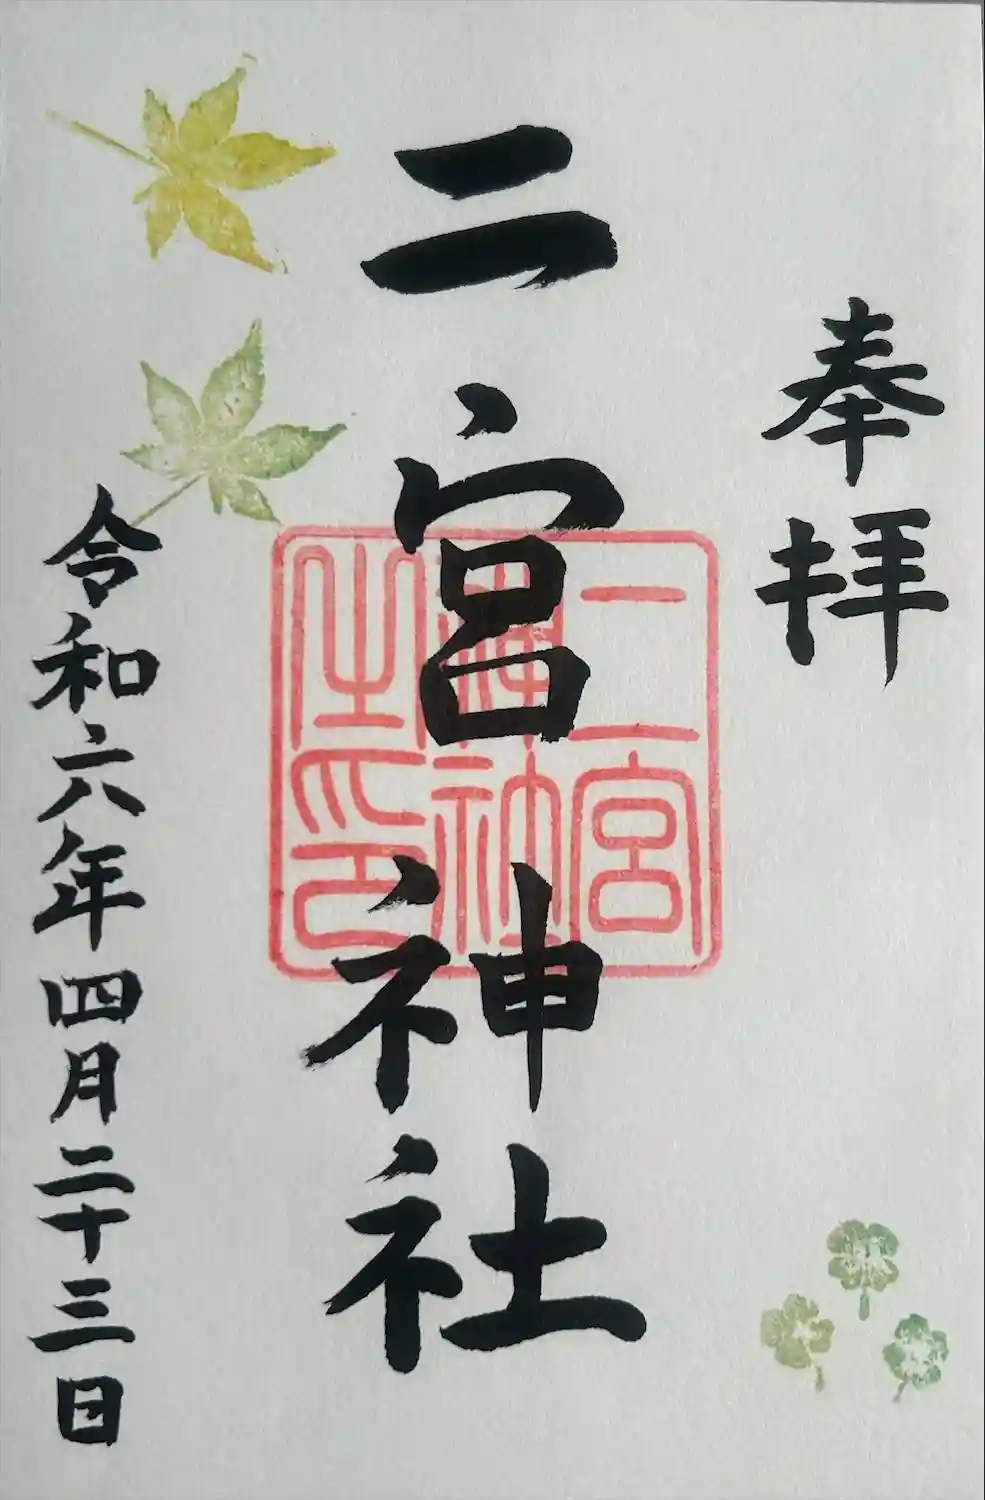 奉拝
二宮神社
二宮
神社
之印
令和六年四月二十三日